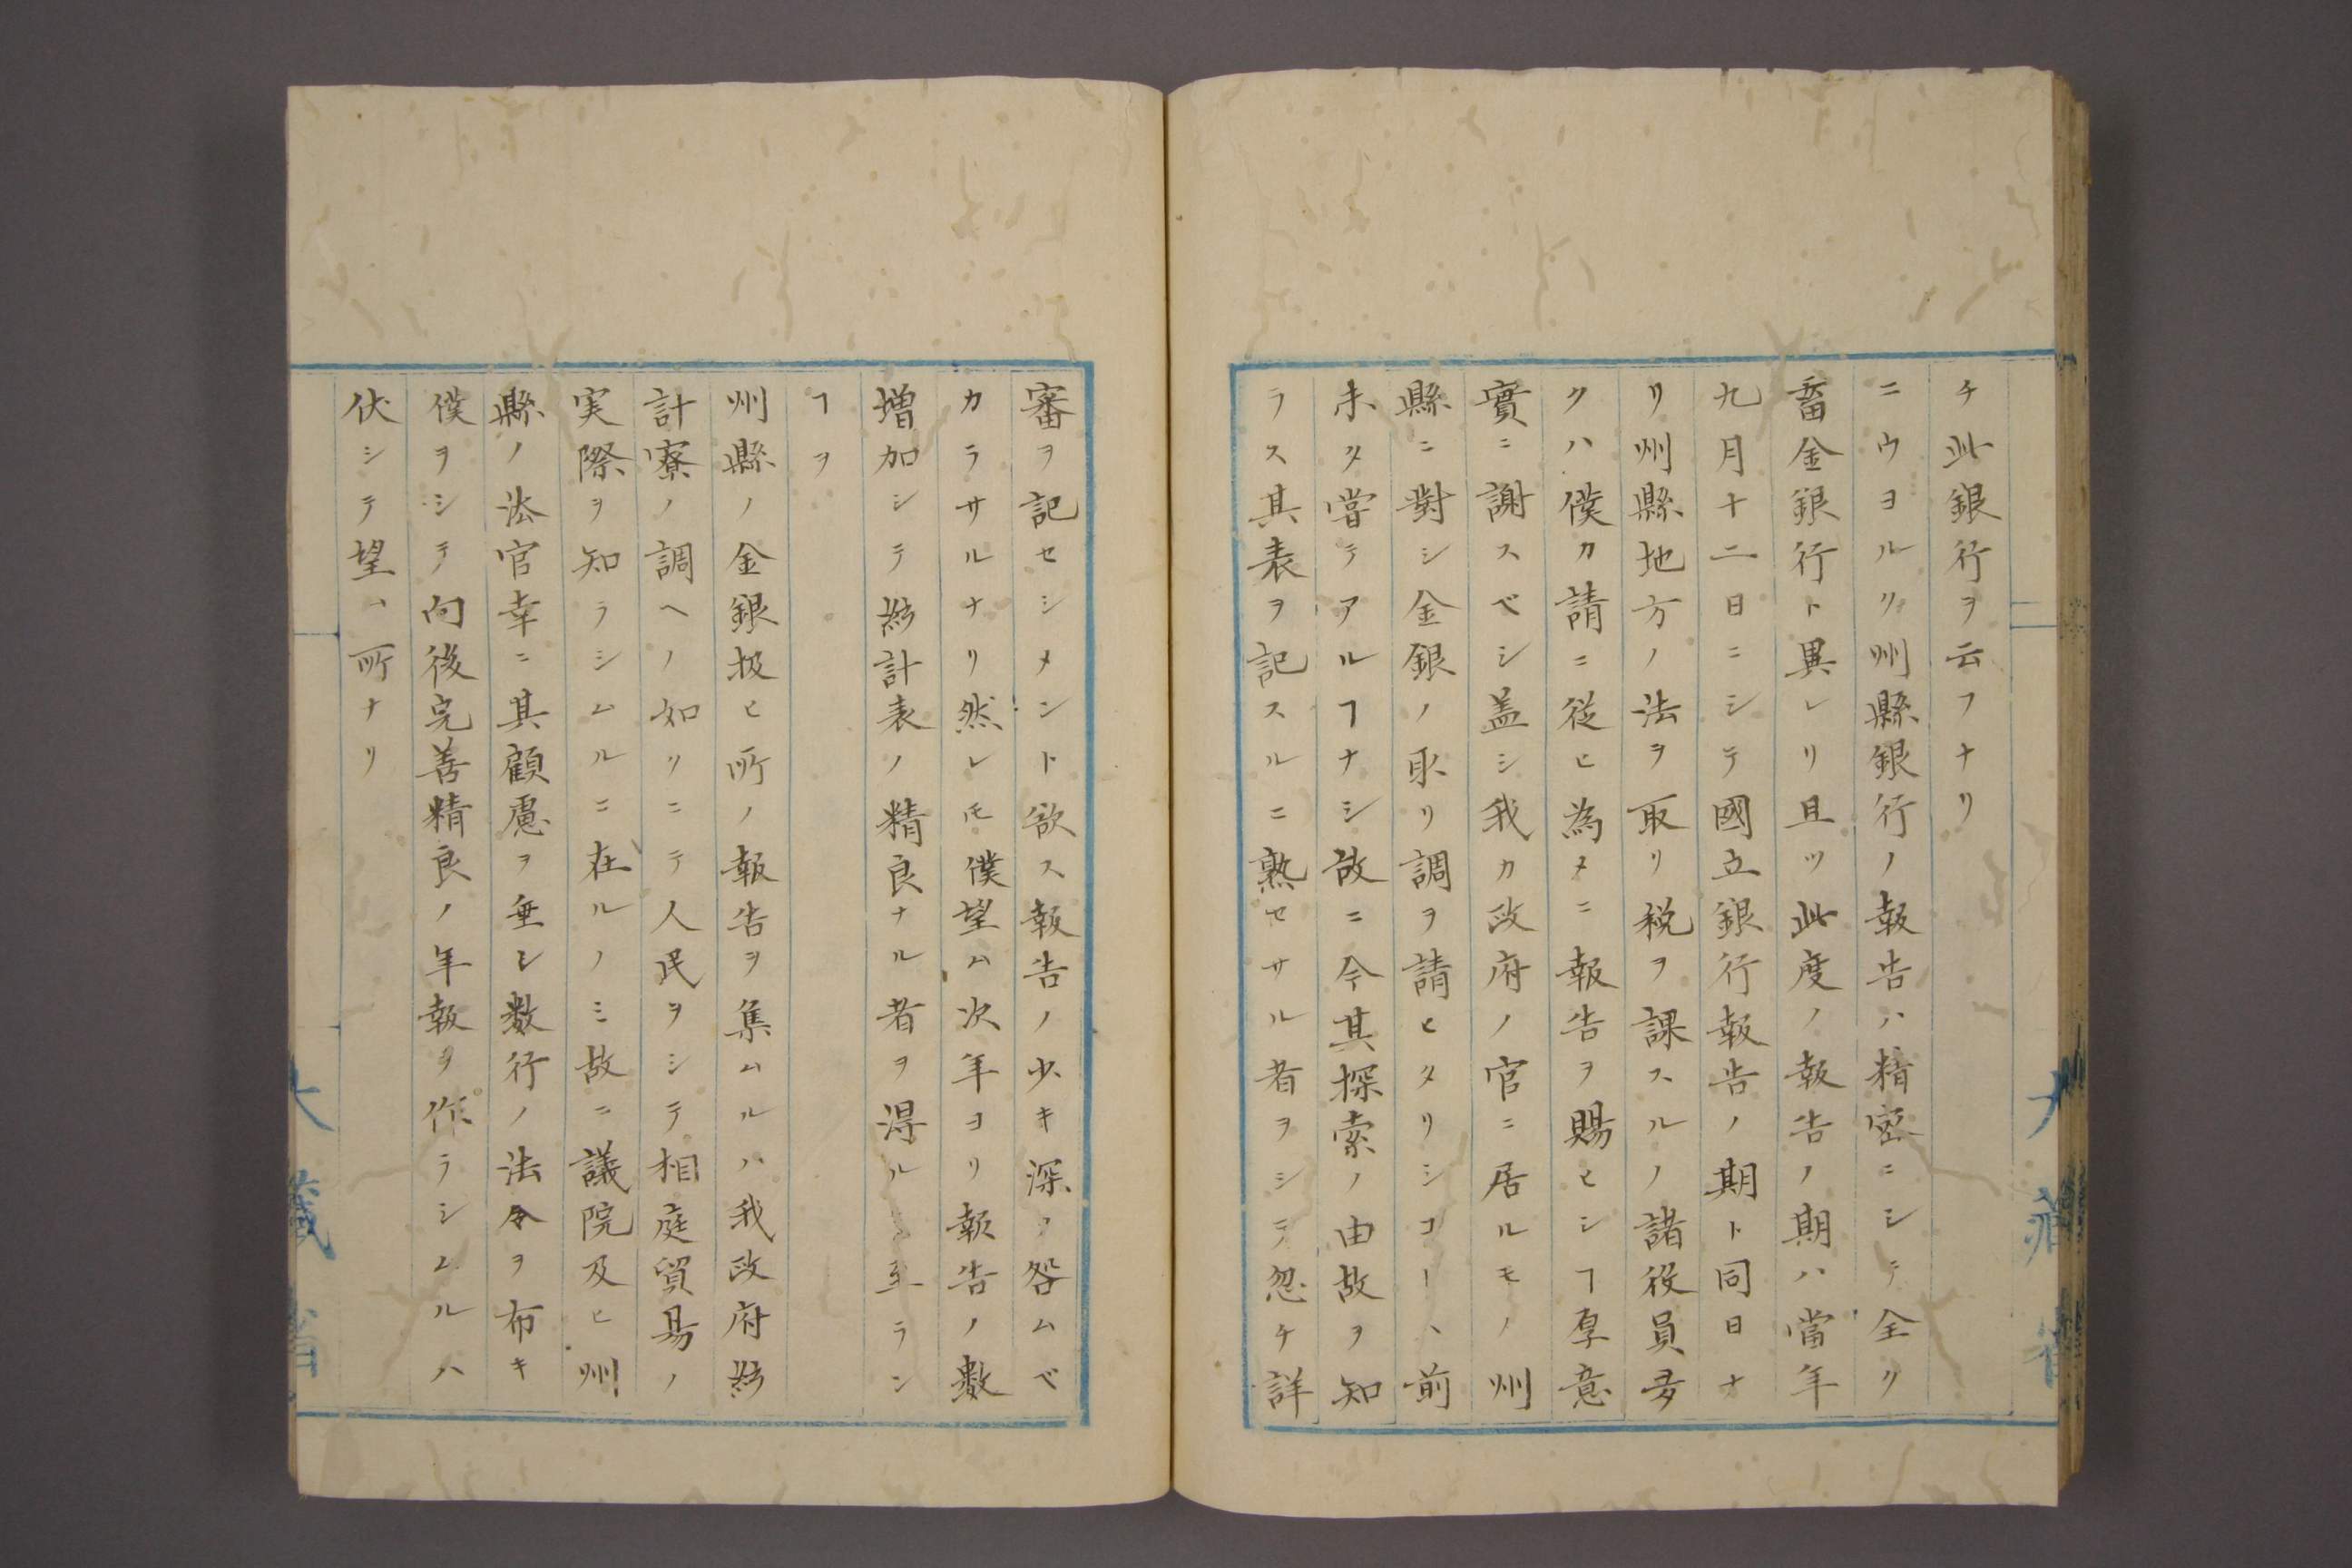 チ此銀行ヲ云フナリ
ニウヨルク州縣銀行ノ報告ハ精密ニシテ全ク
畜金銀行ト異レリ且ツ此度ノ報告ノ期ハ當年
九月十二日ニシテ國立銀行報告ノ期ト同日ナ
リ州縣地方ノ法ヲ取リ税ヲ課スルノ諸役員多
クハ僕カ請ニ従ヒ為メニ報告ヲ賜ヒシヿ厚意
實ニ謝スベシ盖シ我カ政府ノ官ニ居ルモノ州
縣ニ對シ金銀ノ取リ調ヲ請ヒタリシコーハ前
未タ嘗テアルヿナシ故ニ今其探索ノ由故ヲ知
ラス其表ヲ記スルニ熟セサル者ヲシテ忽チ詳
審ヲ記セシメント欲ス報告ノ少キ深ク咎ムベ
カラサルナリ然レモ僕望ムハ次年ヨリ報告ノ數
増加シテ総計表ノ精良ナル者ヲ得ルニ至ラン
ヿヲ
州縣ノ金銀扱ヒ所ノ報告ヲ集ムルハ我政府総
計寮ノ調ヘノ如クニテ人民ヲシテ相庭貿易ノ
実際ヲ知ラシムルニ在ルノミ故ニ議院及ヒ州
縣ノ法官幸ニ其顧慮ヲ垂レ数行ノ法令ヲ布キ
僕ヲシテ向後完善精良ノ年報ヲ作ラシムルハ
伏シテ望ム所ナリ
大藏省